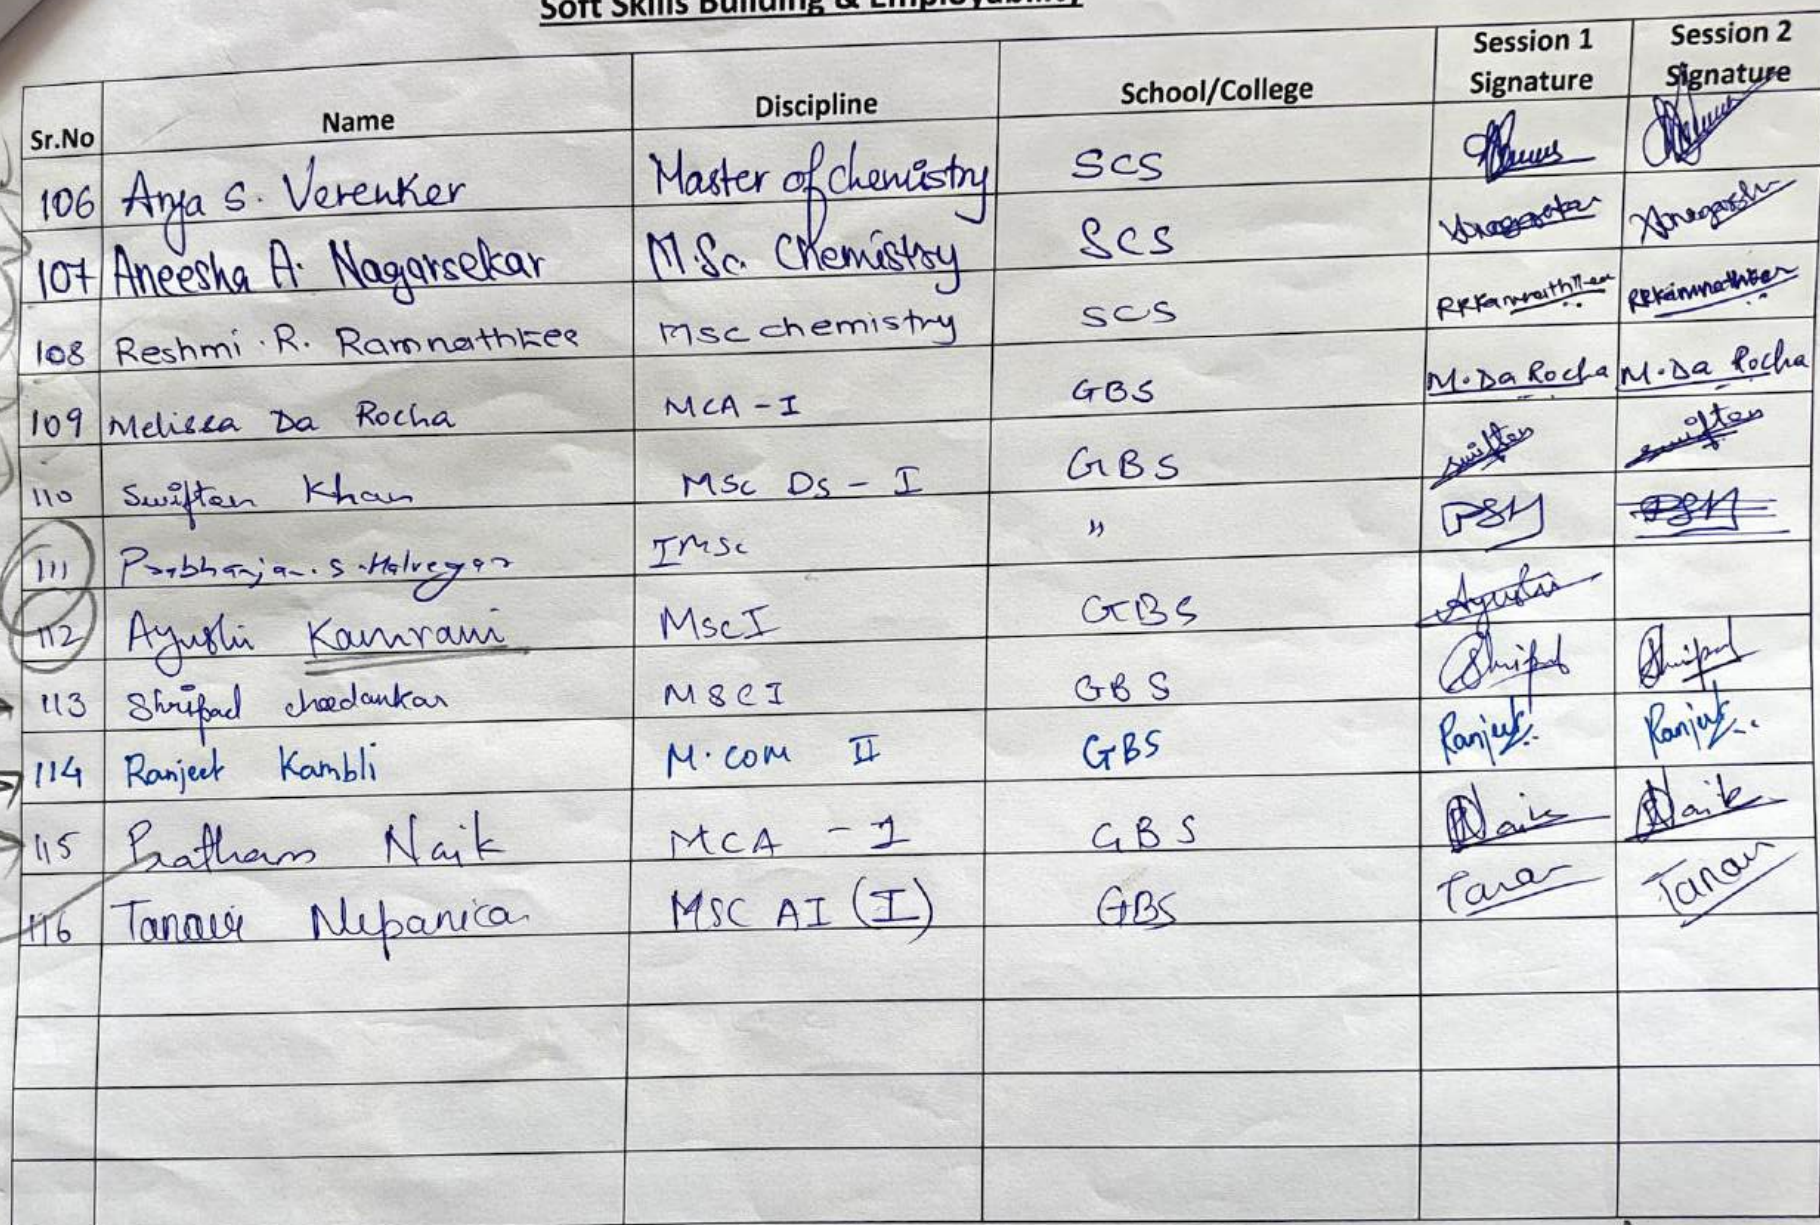 Soft Skills Building & Employability
Sr.No Name Discipline School/College Session 1 Signature Session 2 Signature
106 Anja S. Verenker Master of chemistry SCS
107 Aneesha A. Nagarsekar M.Sc. Chemistry SCS
108 Reshmi . R. Ramnathkee Msc chemistry SCS RRKamnathkar RRKamnathkar
109 Melissa Da Rocha MCA - I GBS M. Da Rocha M. Da Rocha
110 Swiften Khan MSc Ds - I GBS swiften swiften
111 Prabhanjan . S . Halvegar IMSc " PSH PSH
112 Ayushi Kamrani Msc I GBS Ayushi
113 Shripad chodankar MSC I GBS Shripad Shripad
114 Ranjeet Kambli M.COM II GBS Ranjeet Ranjeet
115 Pratham Naik MCA - I GBS Naik Naik
116 Tanavi Nepanica MSC AI (I) GBS Tanav Tanavi